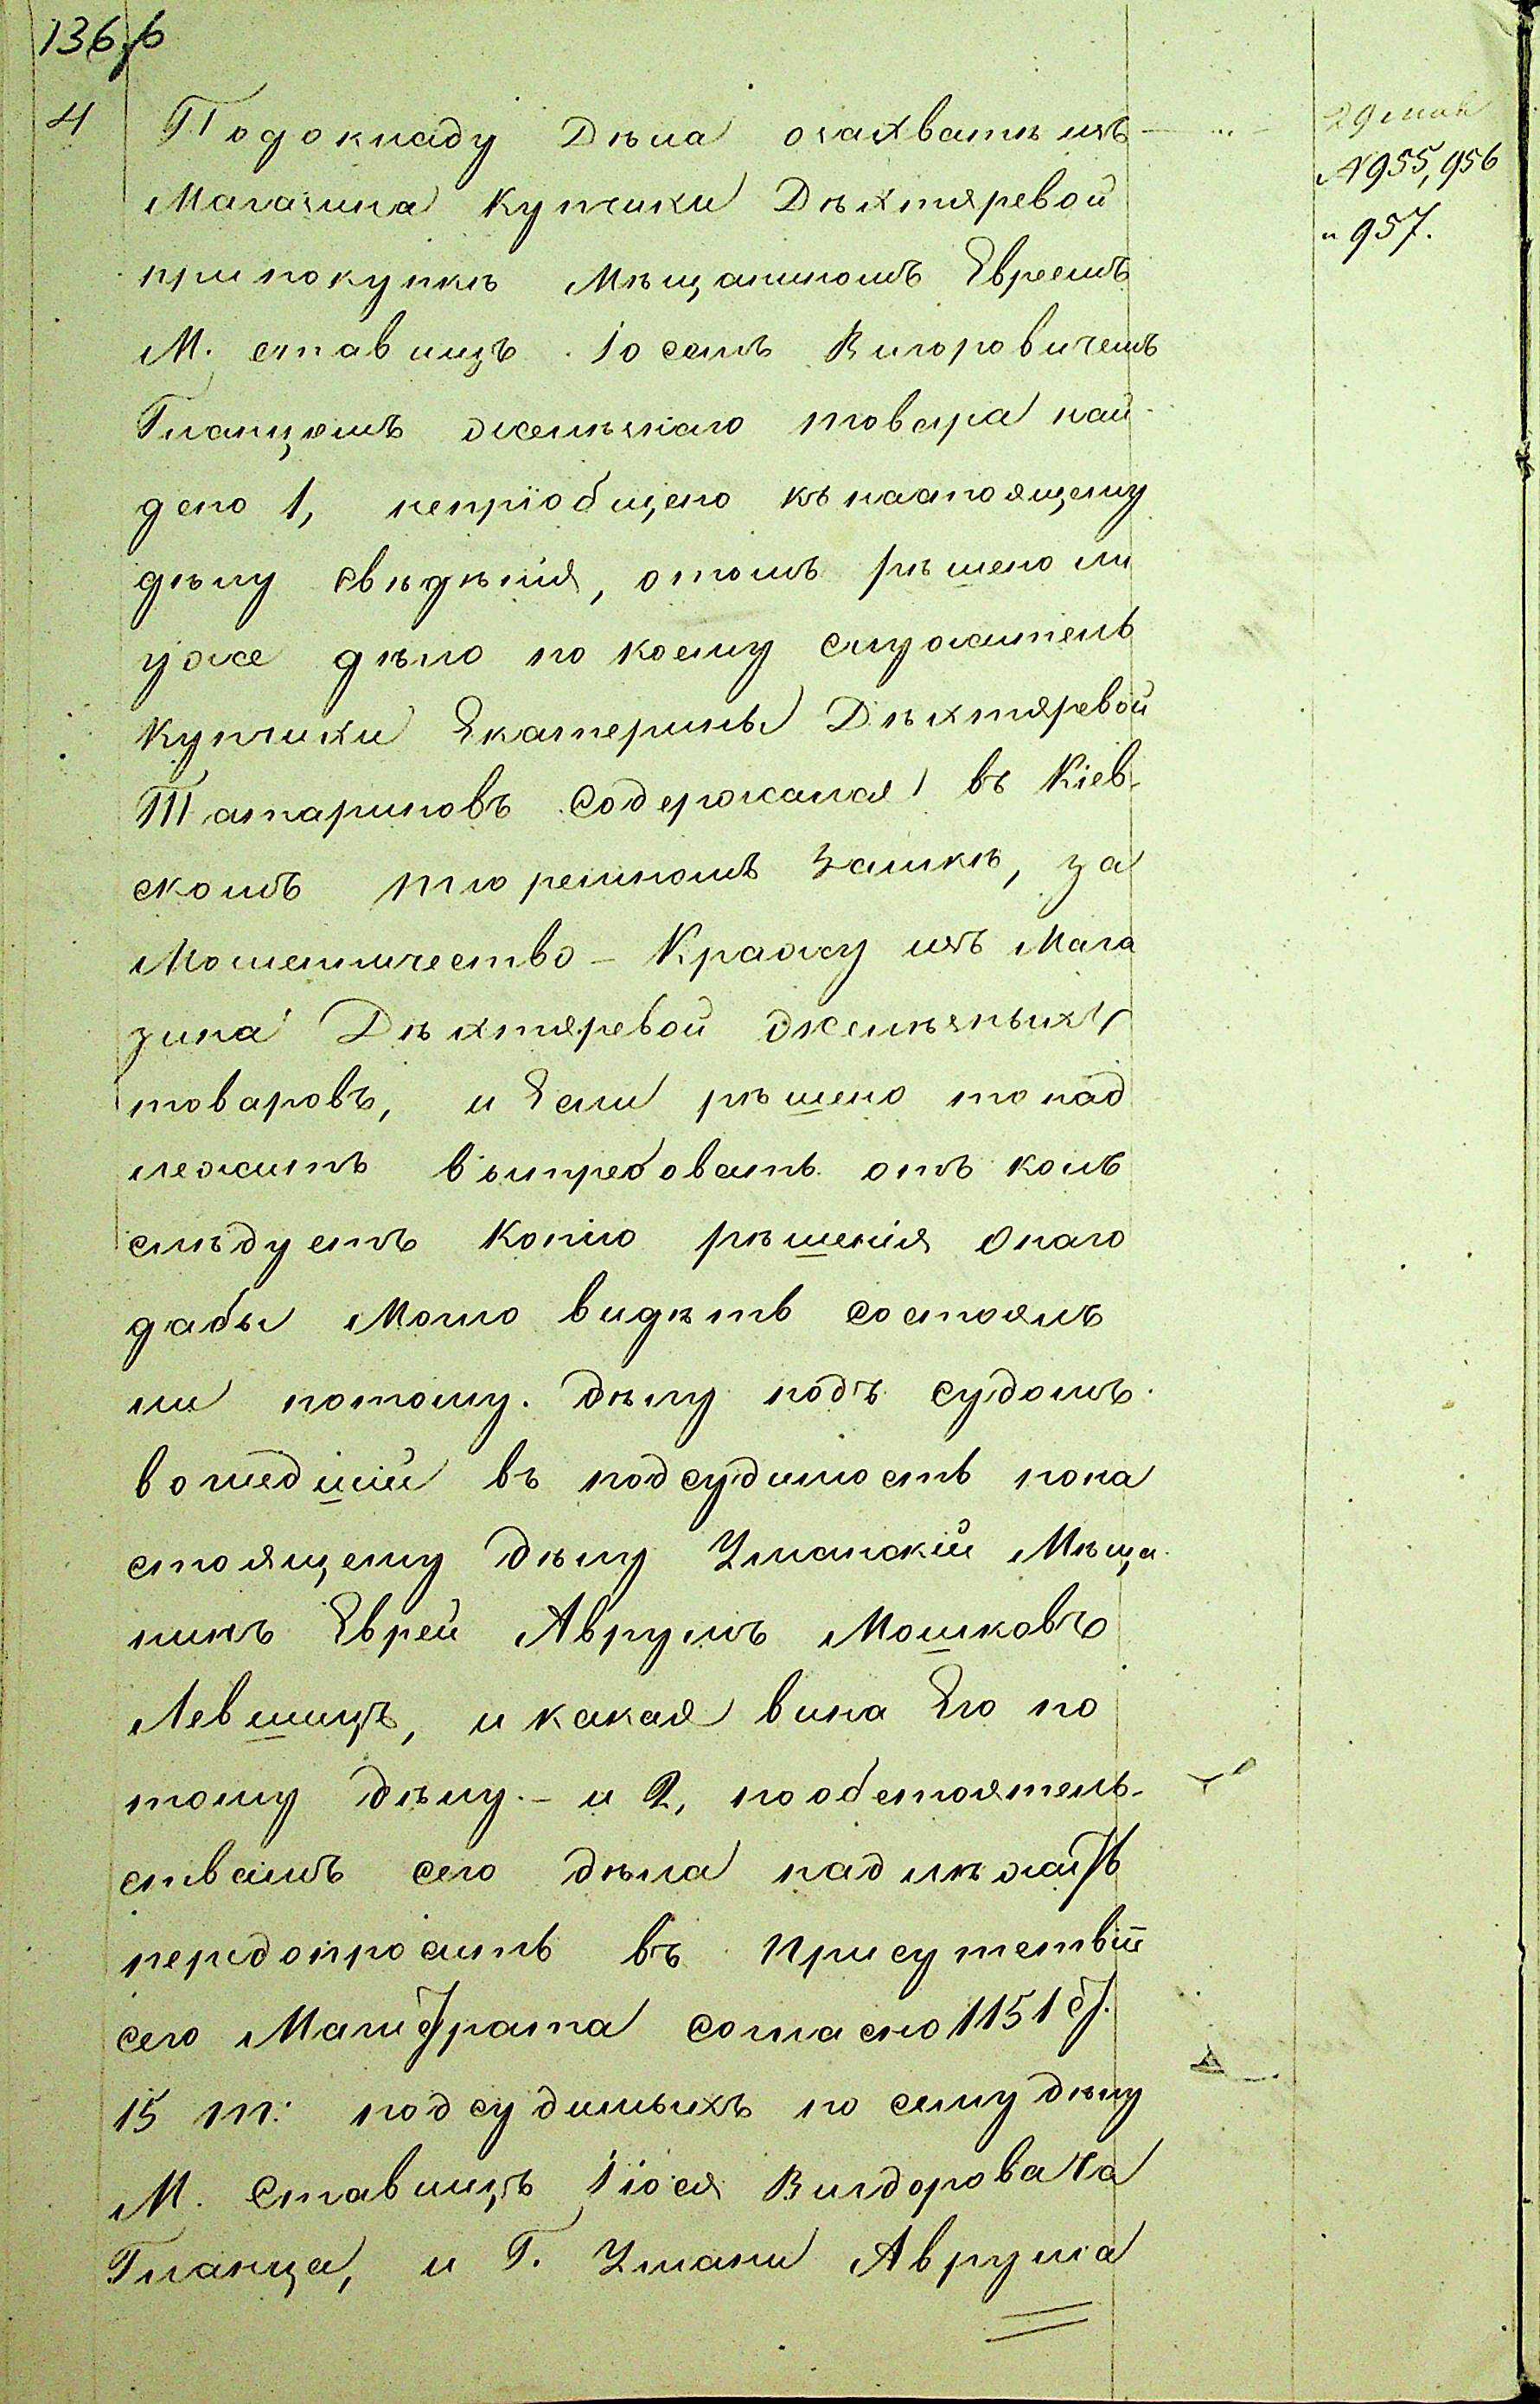 136 /б
4 Подокладу Дѣла озахватѣ изъ
29 мая
№ 955, 956
и 957.
Магазина Купчихи Дѣхтяревой
при покупкѣ Мѣщаниномъ Евреемъ
М. ставищъ Іосемъ Вигоровичемъ
Гланцемъ желѣзнаго товара най-
дено 1, непріобщено къ настоящему
дѣлу свѣдѣнія, отомъ рѣшено ли
уже дѣло по коему служитель
Купчихи Екатерины Дѣхтяревой
Татариновъ Содержался въ Кіев-
скомъ тюремномъ Замкѣ, за
Мошенничество – Кражу изъ Мага
зина Дѣхтяревой желѣзныхъ
товаровъ, и Если рѣшено то над
лежитъ вытребовать отъ кого
слѣдуетъ Копію рѣшенія Онаго
дабы Можно видѣть состоялъ
ли потому. дѣлу подъ судомъ
вошедшій въ подсудимость пона
стоящему дѣлу Уманскій Мѣща-
нинъ Еврей Аврумъ Мошковъ
Левшицъ, и какая вина Его по
тому дѣлу. – и 2, пообстоятель-
ствамъ сего дѣла надлѣжитъ
передопросить въ Присутствіи
сего Магистрата согласно 1151 ст.
15 т: подсудимыхъ по сему дѣлу
М. Ставищъ Іося Вигдоровача
Гланца, и Г. Умани Аврума